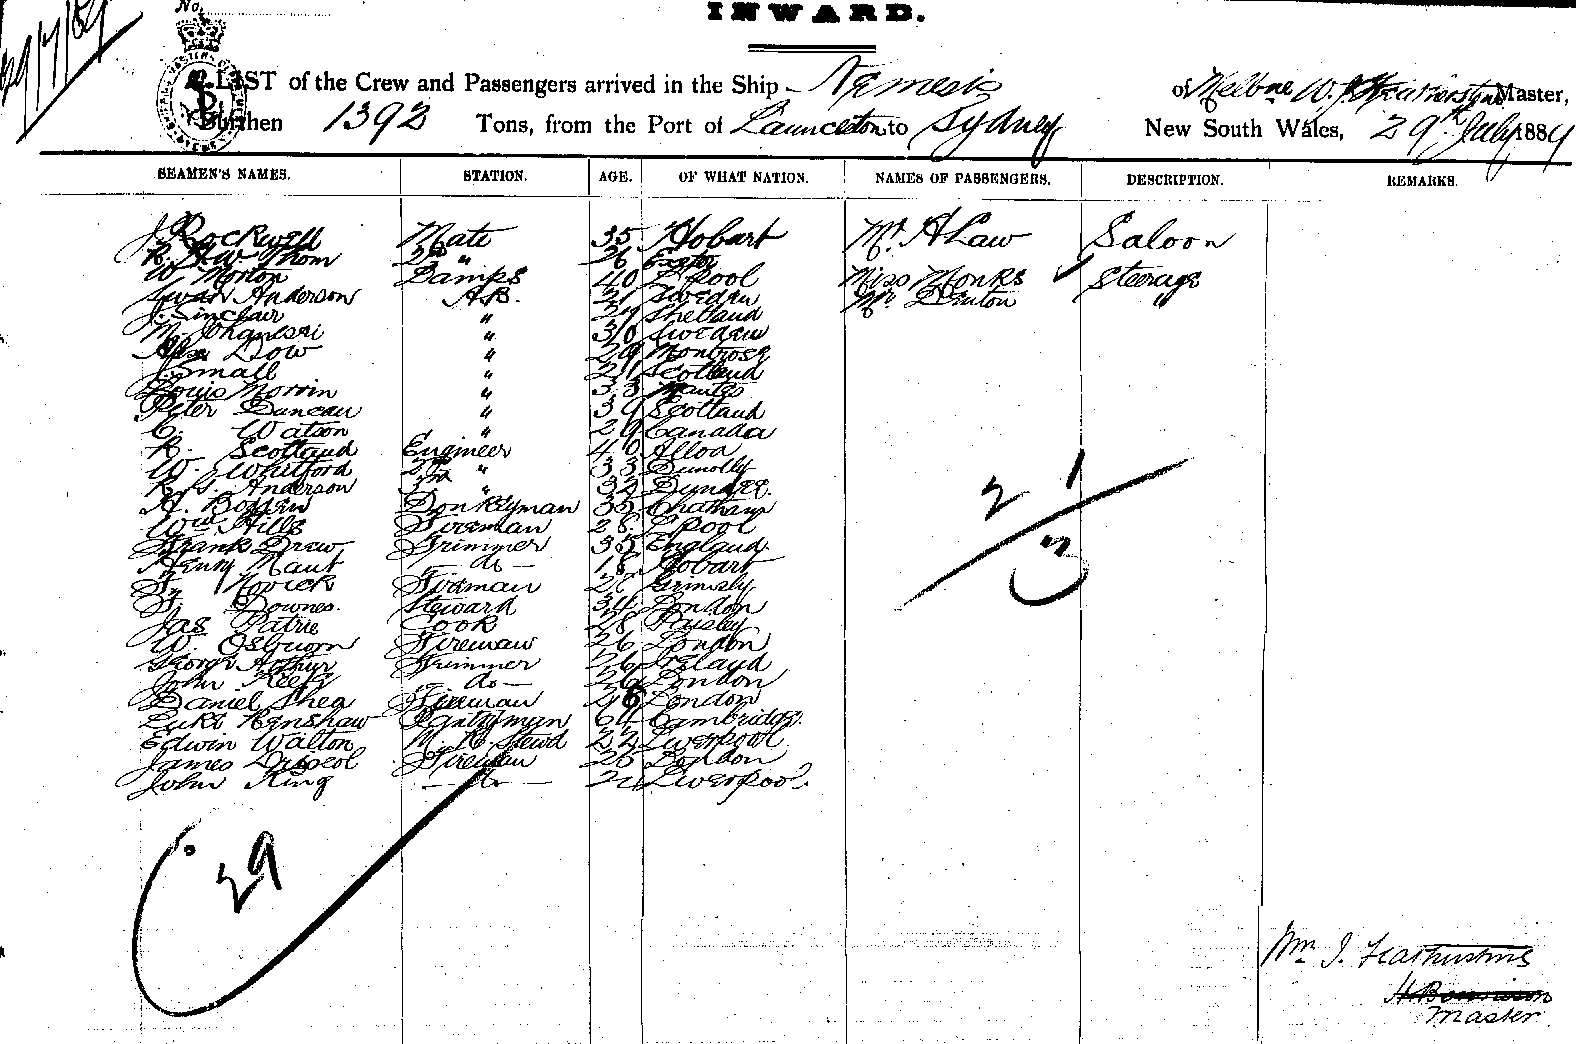 No.
INWARD.
29/7/89
LIST of the Crew and Passengers arrived in the Ship Nemesis of Melbne W. J. Master,
Burthen 1392 Tons, from the Port of Launceston to Sydney New South Wales, 29th July 1889
SEAMEN'S NAMES. STATION. AGE. OF WHAT NATION. NAMES OF PASSENGERS. DESCRIPTION. REMARKS.
J. Rockwell Mate 35 Hobart Mr. A Law Saloon
Thom 2nd " 26 Exeter
W Morton Lamps 40 L'pool Miss Monks Steerage
Swan Anderson A.B. 21 Sweden Mr Denton "
J. Sinclair " 27 Shetland
M. " 30 Sweden
Alex Dow " 29 Montrose
J. Small " 21 Scotland
Louis Morvin " 33 Nantes
Peter Duncan " 39 Scotland
C. Watson " 29 Canada
R. Scotland Engineer 40 Alloa
W. Whitford 2nd " 33 Dunolly
Anderson 3rd " 32 Dundee.
Donkeyman 35 Chatham
Wm Hills Fireman 28 L'pool
Frank Drew Trimmer 35 England
Henry Maut — do — 18 Hobart
Novick Fireman Grimsby
Downes. Steward 34 London
Jas Patrie Cook 28 Paisley
W. Osbuorn Fireman 26 London
George Arthur Trimmer 26 Ireland
John Keefe — do — London
Daniel Shea Fireman London
Luke Henshaw Pantryman 64 Cambridge.
Edwin Walton M. R. Stewd 22 Liverpool
James Driscol Fireman London
John King — do — Liverpool.
2 1
3
29
Wm J. Featherstone
Master